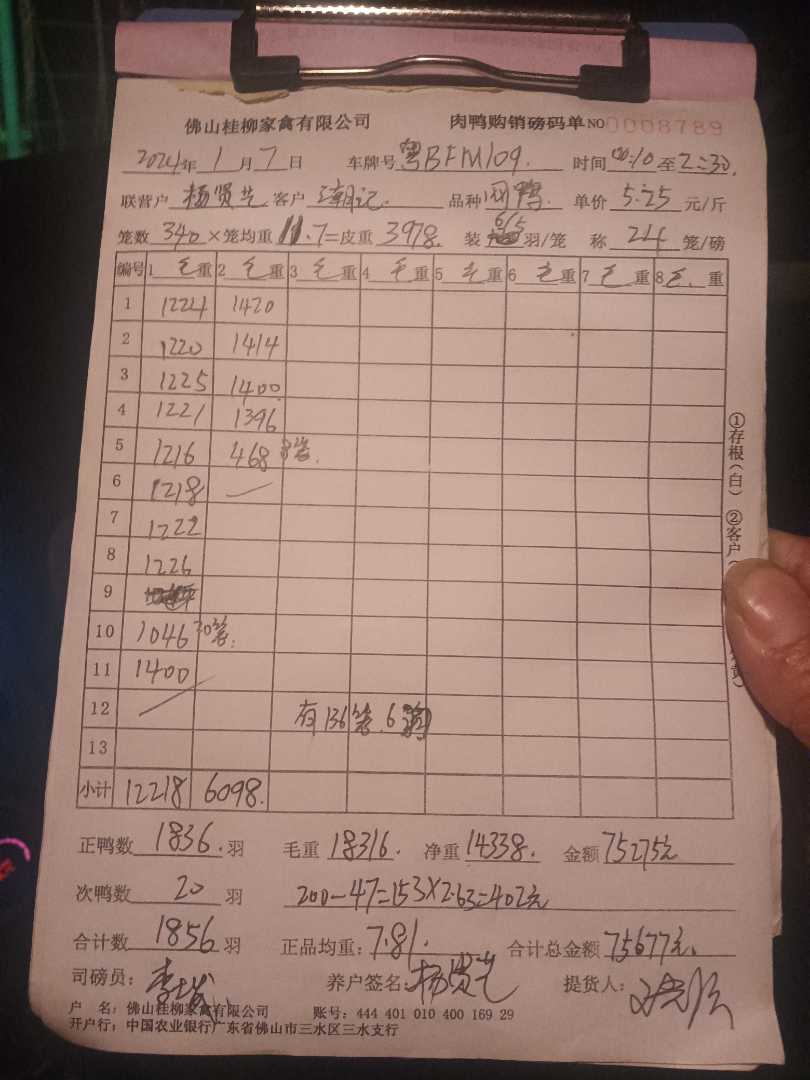 佛山桂柳家禽有限公司 肉鸭购销磅码单 NO 0008789
2024年 1月 7日 车牌号 粤BFM109. 时间 00:10 至 2:30.
联营户 杨贤芝 客户 潮记. 品种 肉鸭. 单价 5.25 元/斤
笼数 340 ×笼均重 11.7=皮重 3978. 装 6/5 羽/笼 称 24 笼/磅
编号 1 毛重 2 毛重 3 毛重 4 毛重 5 毛重 6 毛重 7 毛重 8 毛重
1 1224 1420
2 1220 1414
3 1225 1400
4 1221 1396
5 1216 468 8笼.
6 1218
7 1222
8 1226
9
10 1046 20笼.
11 1400
12 有136笼.6
13
小计 12218 6098.
正鸭数 1836. 羽 毛重 18316. 净重 14338. 金额 75275元
次鸭数 20 羽 200-47=153×2.63=402元
合计数 1856 羽 正品均重: 7.81. 合计总金额 75677元.
司磅员: 养户签名: 杨贤芝 提货人:
户 名: 佛山桂柳家禽有限公司 账号: 444 401 010 400 169 29
开户行: 中国农业银行广东省佛山市三水区三水支行
①存根(白) ②客户